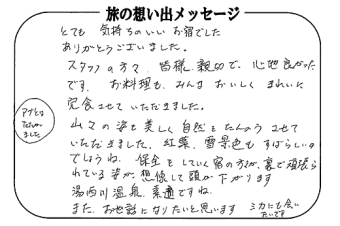 旅の想い出メッセージ
とても 気持ちのいい お宿でした
ありがとうございました。
スタッフの方々、皆様、親切で、心地良かった
です。お料理も、みんな おいしく きれいに
完食させて いただきました。
山々の姿も美しく 自然を たんのう させて
いただきました。紅葉、雪景色も すばらしいの
でしょうね。保全をしていく宿の方が、裏で頑張ら
れている姿が、想像して頭が下がります
湯西川温泉、素適ですね。
また、お世話になりたいと思います
シカにも会い
たいです